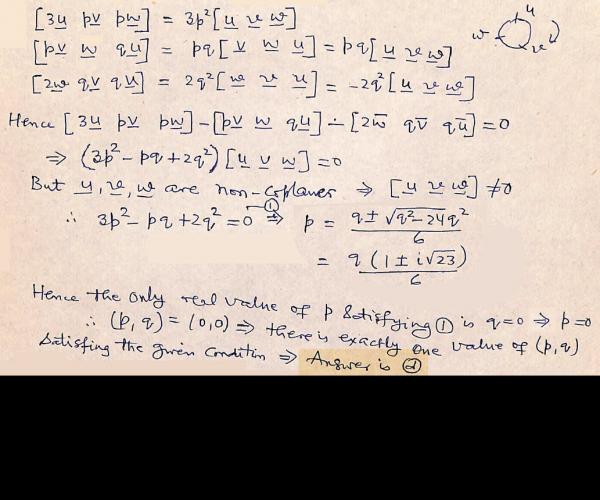 [3u pv pw] = 3p²[u v w]
[pv w qu] = pq[v w u] = pq[u v w]
[2w qv qu] = 2q²[w v u] = -2q²[u v w]
u
w
v
Hence [3u pv pw] - [pv w qu] - [2w̄ qv̄ qū] = 0
⇒ (3p² - pq + 2q²)[u v w] = 0
But u, v, w are non-coplaner ⇒ [u v w] ≠ 0
∴ 3p² - pq + 2q² = 0 —① ⇒ p = (q ± √(q² - 24q²))/6
= q(1 ± i√23)/6
Hence the only real value of p satisfying ① is q=0 ⇒ p=0
∴ (p, q) = (0,0) ⇒ there is exactly one value of (p,q)
Satisfing the given condition ⇒ Answer is ⓓ